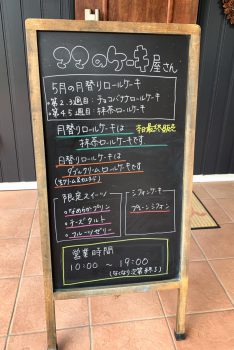 ママのケーキ屋さん
5月の月替りロールケーキ
第2.3週目：チョコバナナロールケーキ
第4.5週目：抹茶ロールケーキ
月替りロールケーキは
抹茶ロールケーキです
日替りロールケーキは
ダブルクリームロールケーキです
限定スイーツ
なめらかプリン
チーズタルト
フルーツゼリー
シフォンケーキ
プレーンシフォン
営業時間
10:00 ～ 19:00
(なくなり次第終了)